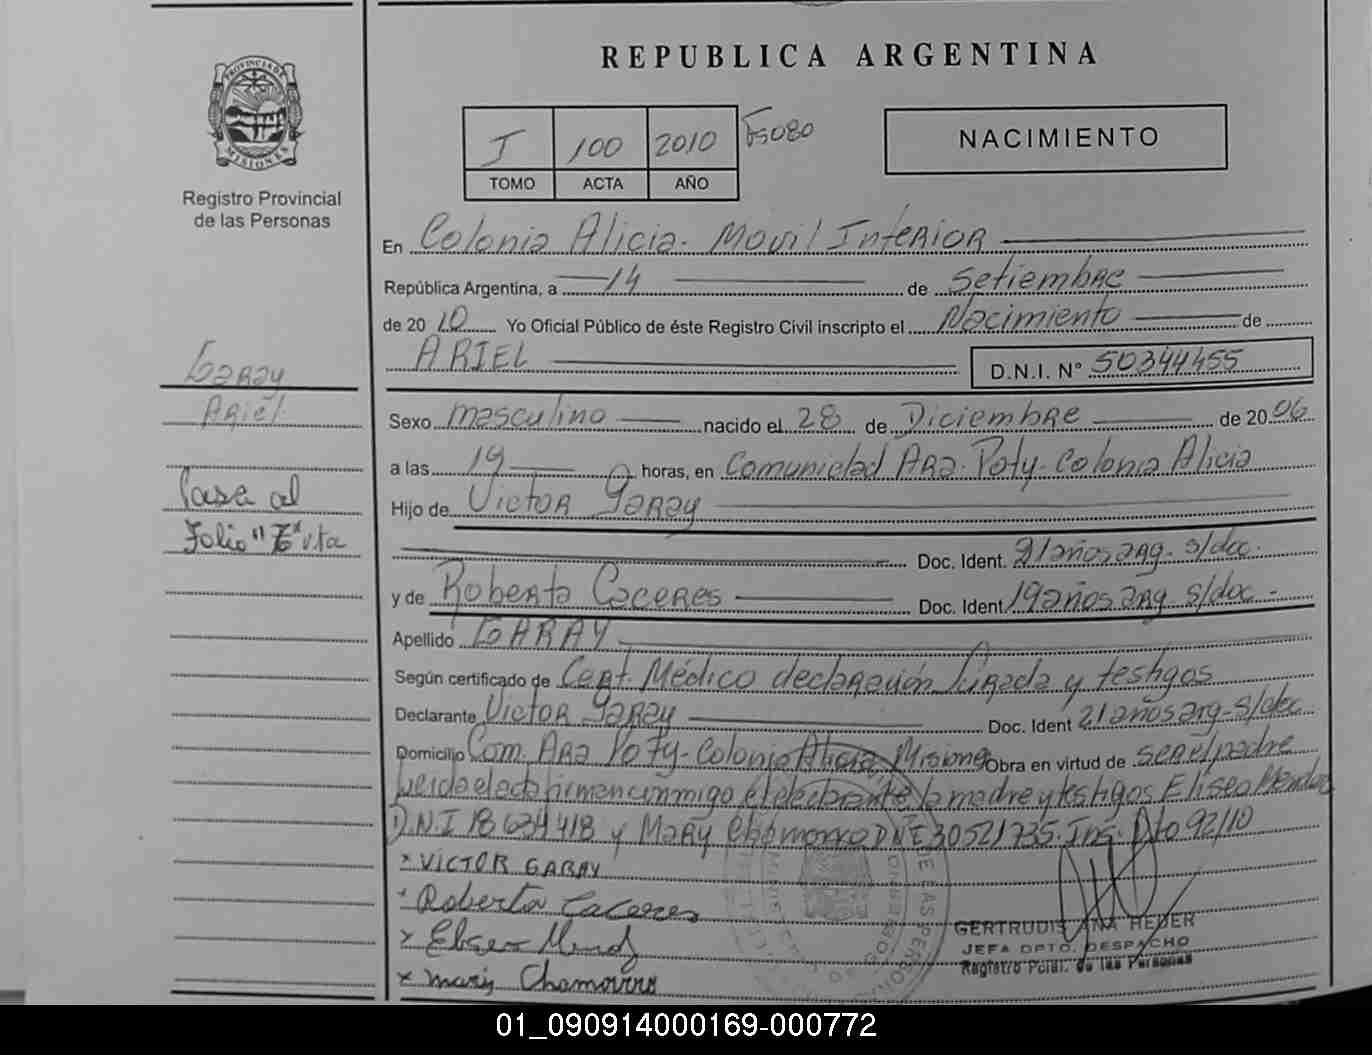 REPUBLICA ARGENTINA
PROVINCIA DE
MISIONES
Registro Provincial
de las Personas
I 100 2010
TOMO ACTA AÑO
NACIMIENTO
En Colonia Alicia. Movil Interior
República Argentina, a 14 de Setiembre
de 2010 Yo Oficial Público de éste Registro Civil inscripto el Nacimiento de
ARIEL D.N.I. N° 50344455
Garay
Ariel
Sexo masculino nacido el 28 de Diciembre de 2006
a las 19 horas, en Comunidad Ara-Poty-Colonia Alicia
Pase al
Folio "7" vta
Hijo de Victor Garay
Doc. Ident. 21 años arg. s/doc.
y de Roberta Caceres Doc. Ident 19 años arg s/doc -
Apellido GARAY
Según certificado de Cert. Médico declaración Jurada y testigos
Declarante Victor Garay Doc. Ident 21 años arg-s/doc
Domicilio Com. Ara Poty-Colonia Alicia Misiones Obra en virtud de ser el padre
Leida el acta firman conmigo el declarante la madre y testigos Eliseo Mendez
D.N.I 18634418 y Mary Chamorro DNI 30521735. Ins. Dto 92/10
x VICTOR GARAY
x Roberta Caceres
x Eliseo
x Mary Chamorro
GERTRUDIS ANA HEDER
JEFA DPTO. DESPACHO
Registro Pcial. de las Personas
01_090914000169-000772